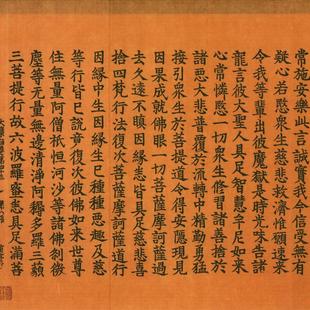 常施安樂此言誠實我今信受無有
疑心若愍衆生慈悲救濟惟願速來
令我等輩出彼魔獄是時光味告諸
龍言彼大聖人具足智慧牟尼如來
心常憐愍一切衆生修習諸善捨於
諸惡大悲普覆於流轉中精勤勇猛
接引衆生於菩提道令得安隱現見
因果成就佛眼一切菩薩摩訶薩過
去久遠不瞋因緣悉皆具足慈悲喜
捨四梵行法復次菩薩摩訶薩道行
因緣中生因緣生已種種惡趣及慈
等行皆已說竟復次彼佛如來世尊
住無量阿僧祇恒河沙等諸佛剎微
塵等无量無邊清淨阿耨多羅三藐
三菩提行故六波羅蜜悉具足滿菩